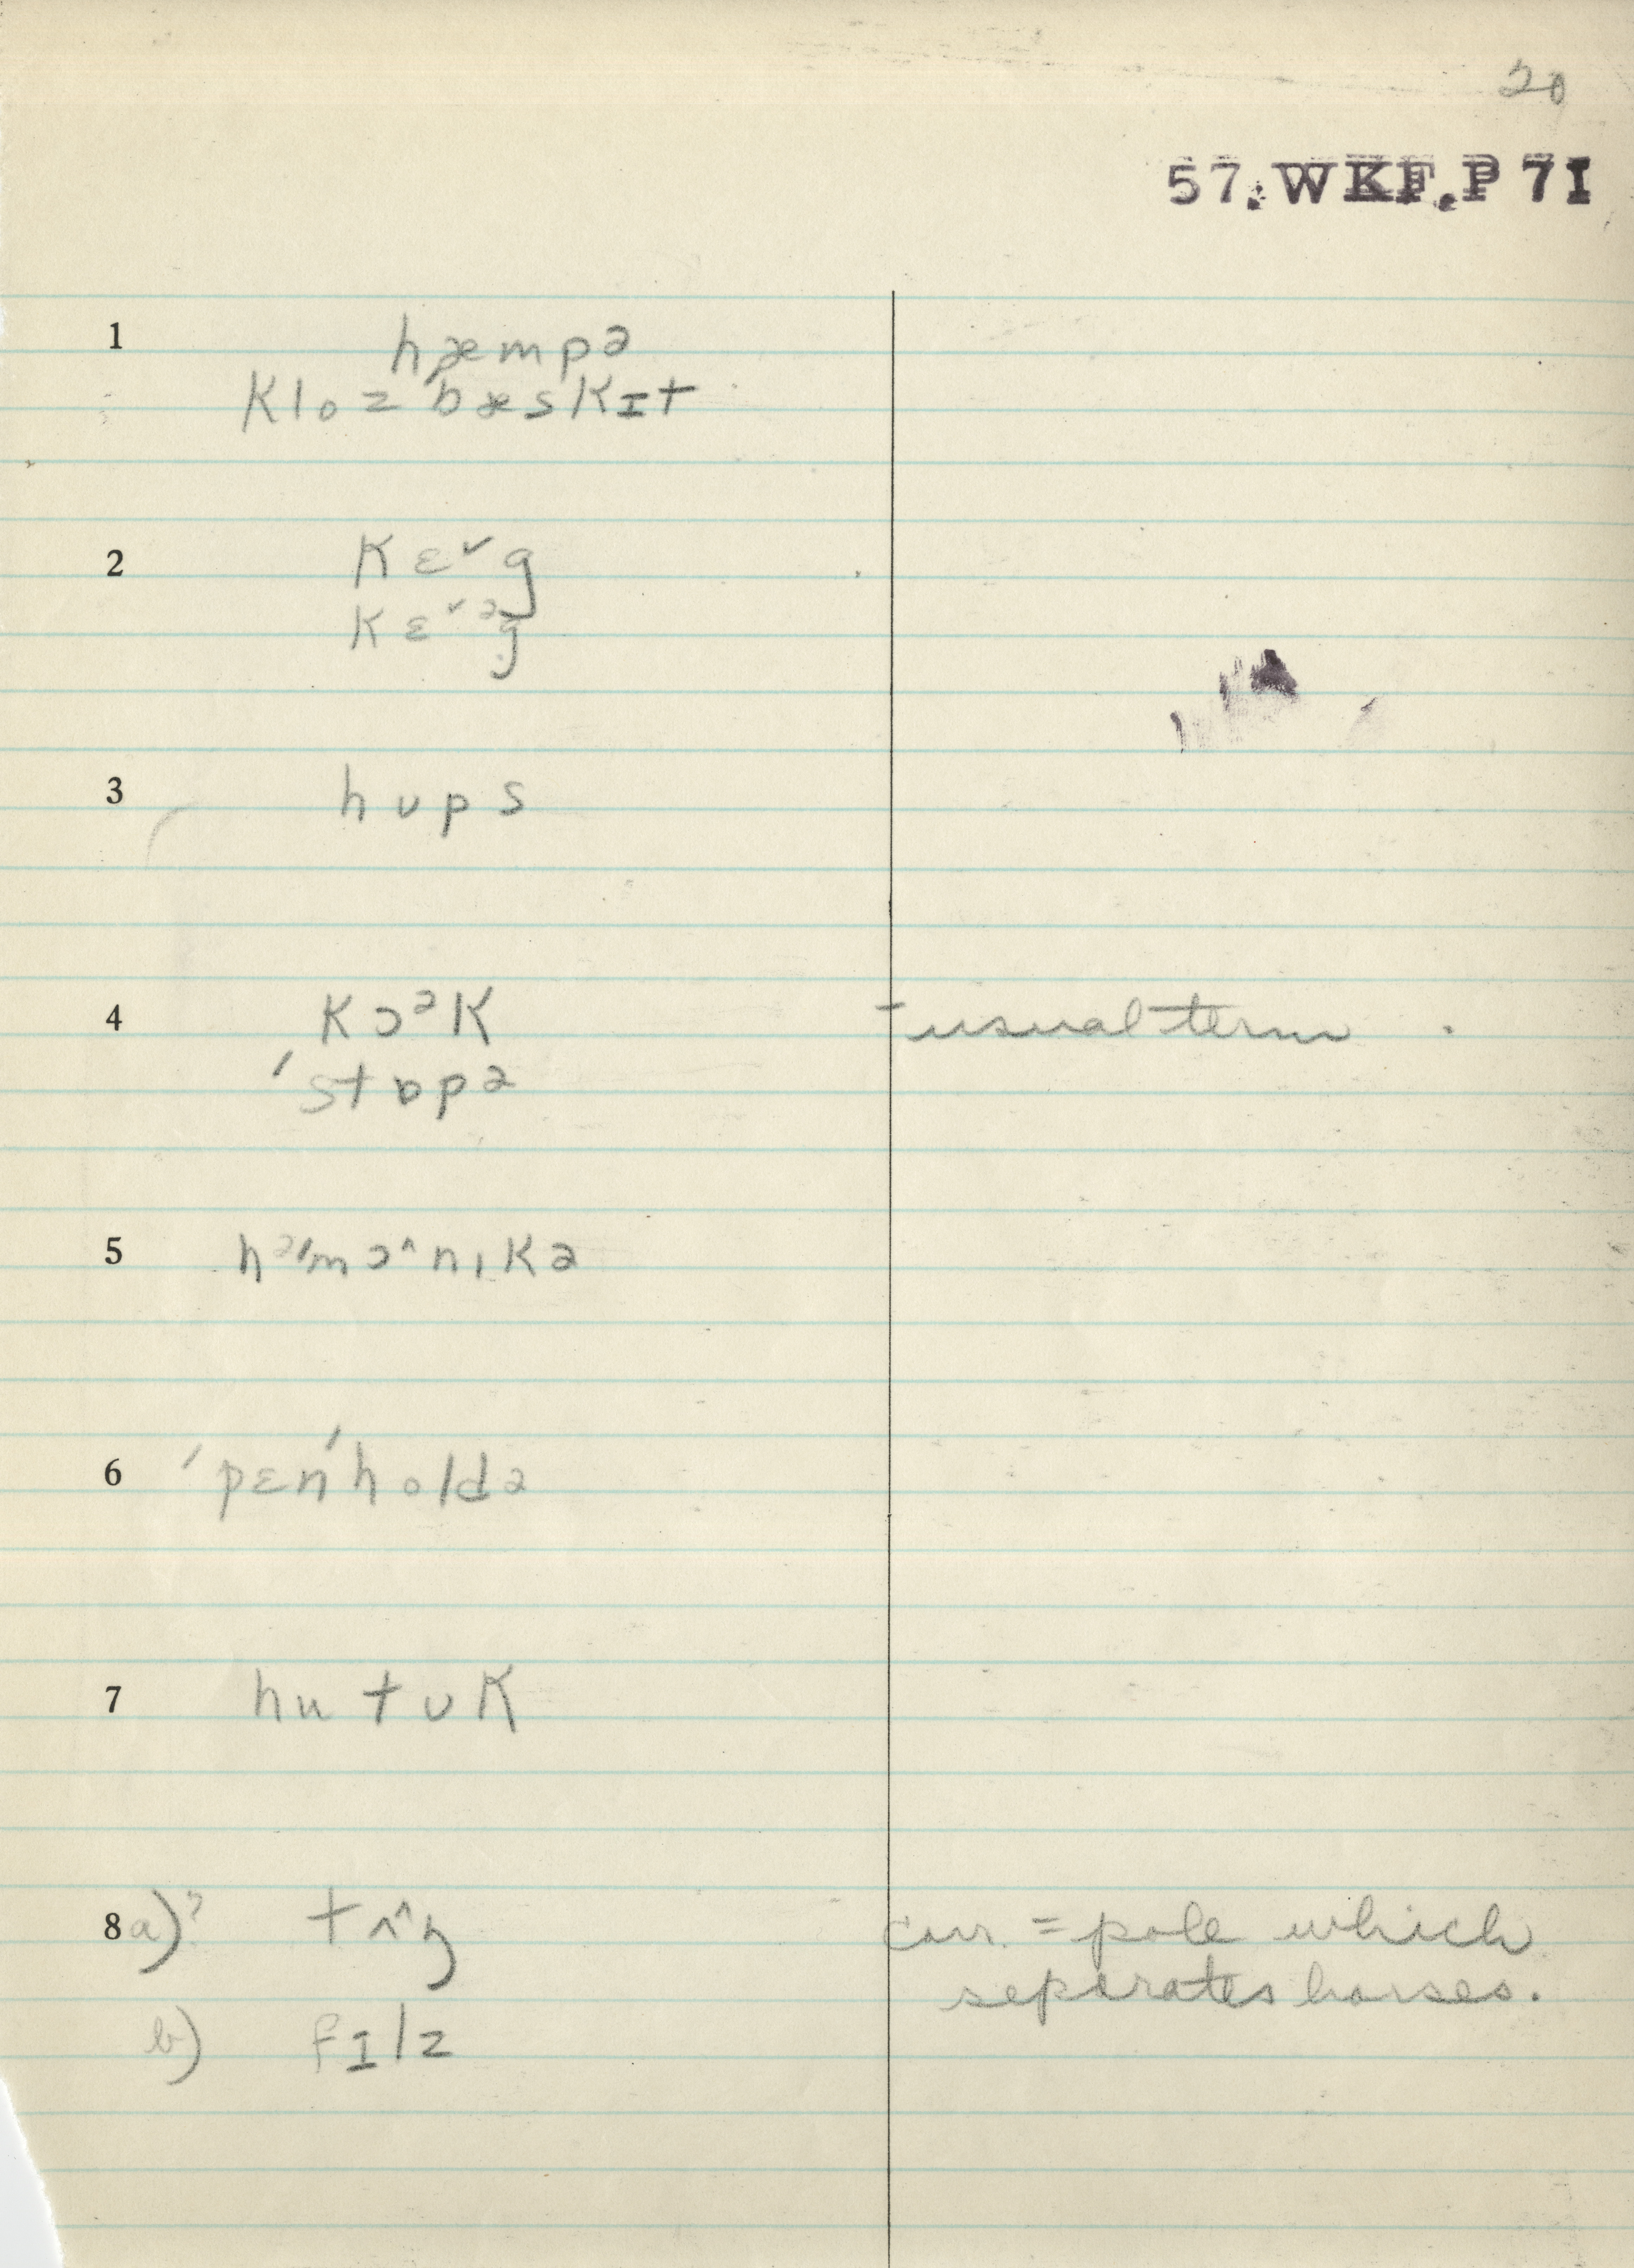 20
57.WKF.P7I
1 hæmpə
klozbæskɪt
2 kɛ˅g
kɛ˅ᵊg
3 hʊps
4 kɔᵊk - usual term.
ˈstɒpə
5 hᵊˈmɔ^nɪkə
6 ˈpɛnˈholdə
7 hutʊk
8 a)? tʌ^ŋ curr. = pole which
separates horses.
b) fɪlz